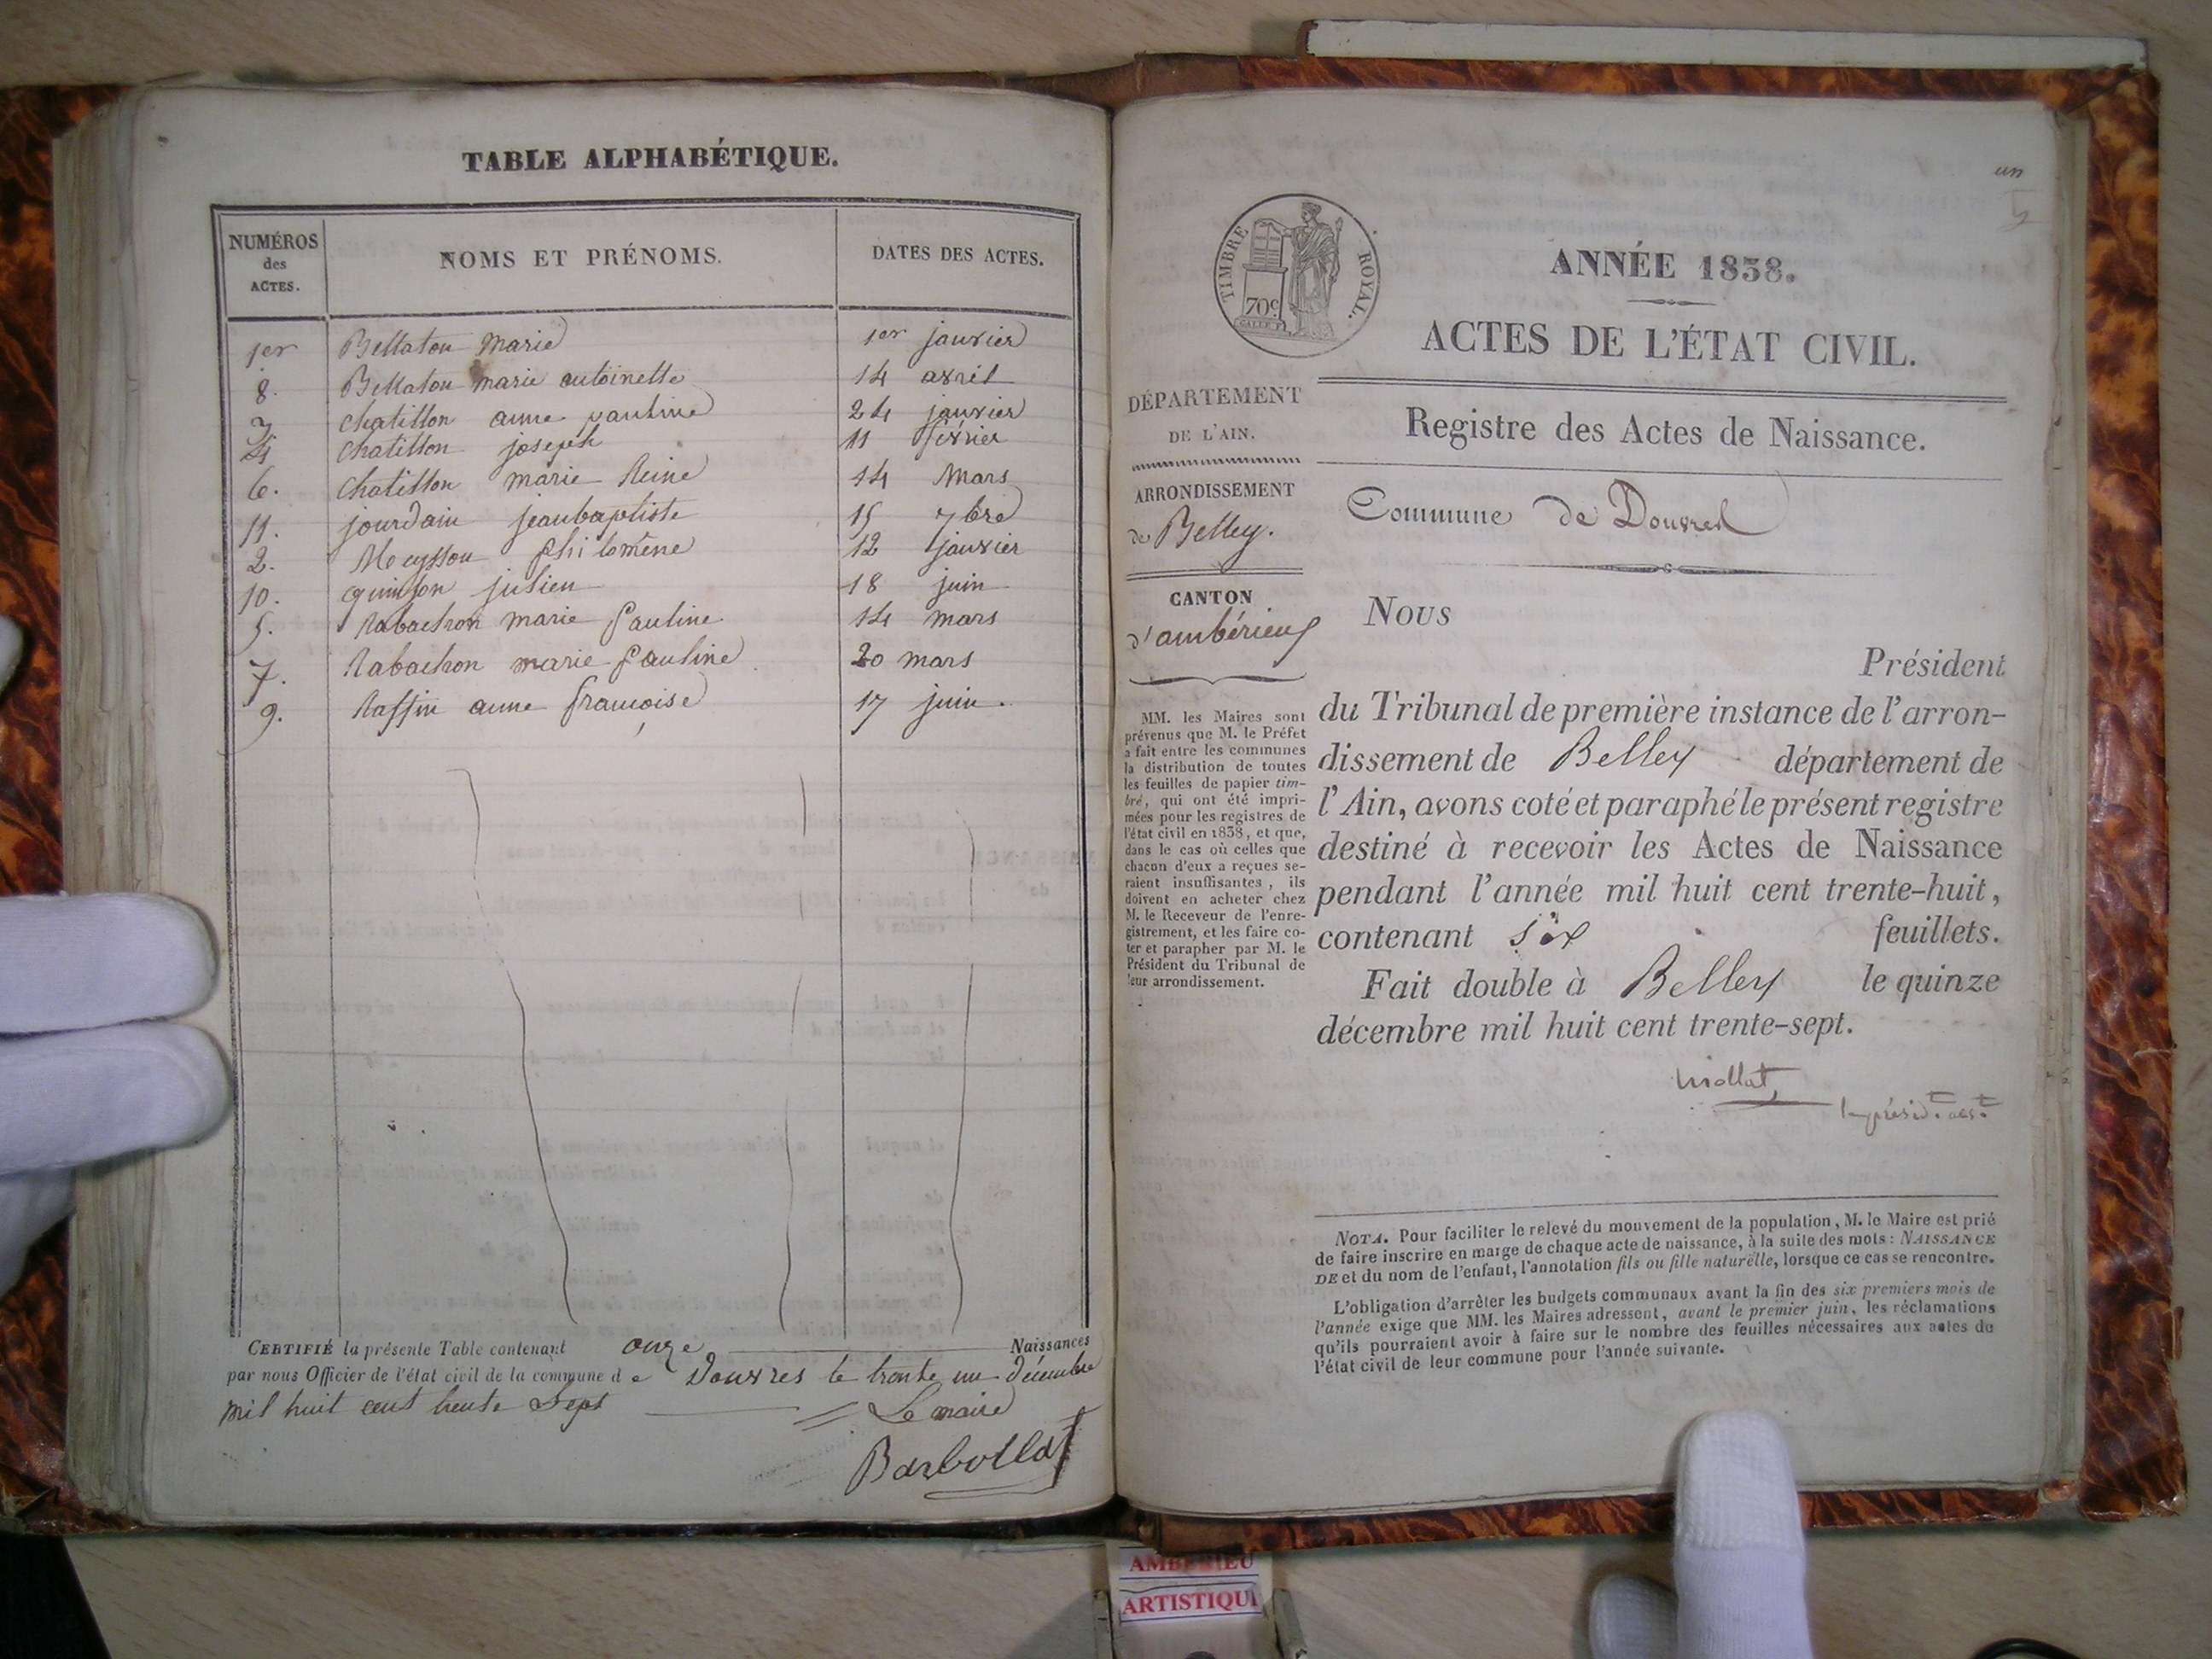 TABLE ALPHABÉTIQUE.
NUMÉROS des ACTES.
NOMS ET PRÉNOMS.
DATES DES ACTES.
1er Bellaton Marie 1er janvier
8. Bellaton marie antoinette 14 avril
3 Chatillon anne pauline 24 janvier
4 Chatillon joseph 11 février
6. Chatillon marie Reine 14 Mars
11. jourdain jeanbaptiste 15 7bre
2. Meysson philomène 12 janvier
10. quinson julien 18 juin
5. Rabachon marie Pauline 14 mars
7. Rabachon marie Pauline 20 mars
9. Raffin anne françoise 17 juin.
CERTIFIÉ la présente Table contenant onze Naissances
par nous Officier de l'état civil de la commune de Douvres le trente un Décembre
mil huit cent trente Sept Le maire
Barbollat
un
TIMBRE ROYAL.
70c
ANNÉE 1838.
ACTES DE L'ÉTAT CIVIL.
Registre des Actes de Naissance.
DÉPARTEMENT
DE L'AIN.
ARRONDISSEMENT
de Belley.
CANTON
d'ambérieux
MM. les Maires sont
prévenus que M. le Préfet
a fait entre les communes
la distribution de toutes
les feuilles de papier tim-
bré, qui ont été impri-
mées pour les registres de
l'état civil en 1838, et que,
dans le cas où celles que
chacun d'eux a reçues se-
raient insuffisantes, ils
doivent en acheter chez
M. le Receveur de l'enre-
gistrement, et les faire co-
ter et parapher par M. le
Président du Tribunal de
leur arrondissement.
Commune de Douvres
Nous
Président
du Tribunal de première instance de l'arron-
dissement de Belley département de
l'Ain, avons coté et paraphé le présent registre
destiné à recevoir les Actes de Naissance
pendant l'année mil huit cent trente-huit,
contenant six feuillets.
Fait double à Belley le quinze
décembre mil huit cent trente-sept.
NOTA. Pour faciliter le relevé du mouvement de la population, M. le Maire est prié
de faire inscrire en marge de chaque acte de naissance, à la suite des mots : NAISSANCE
DE et du nom de l'enfant, l'annotation fils ou fille naturelle, lorsque ce cas se rencontre.
L'obligation d'arrêter les budgets communaux avant la fin des six premiers mois de
l'année exige que MM. les Maires adressent, avant le premier juin, les réclamations
qu'ils pourraient avoir à faire sur le nombre des feuilles nécessaires aux actes de
l'état civil de leur commune pour l'année suivante.
AMBERIEU
ARTISTIQU